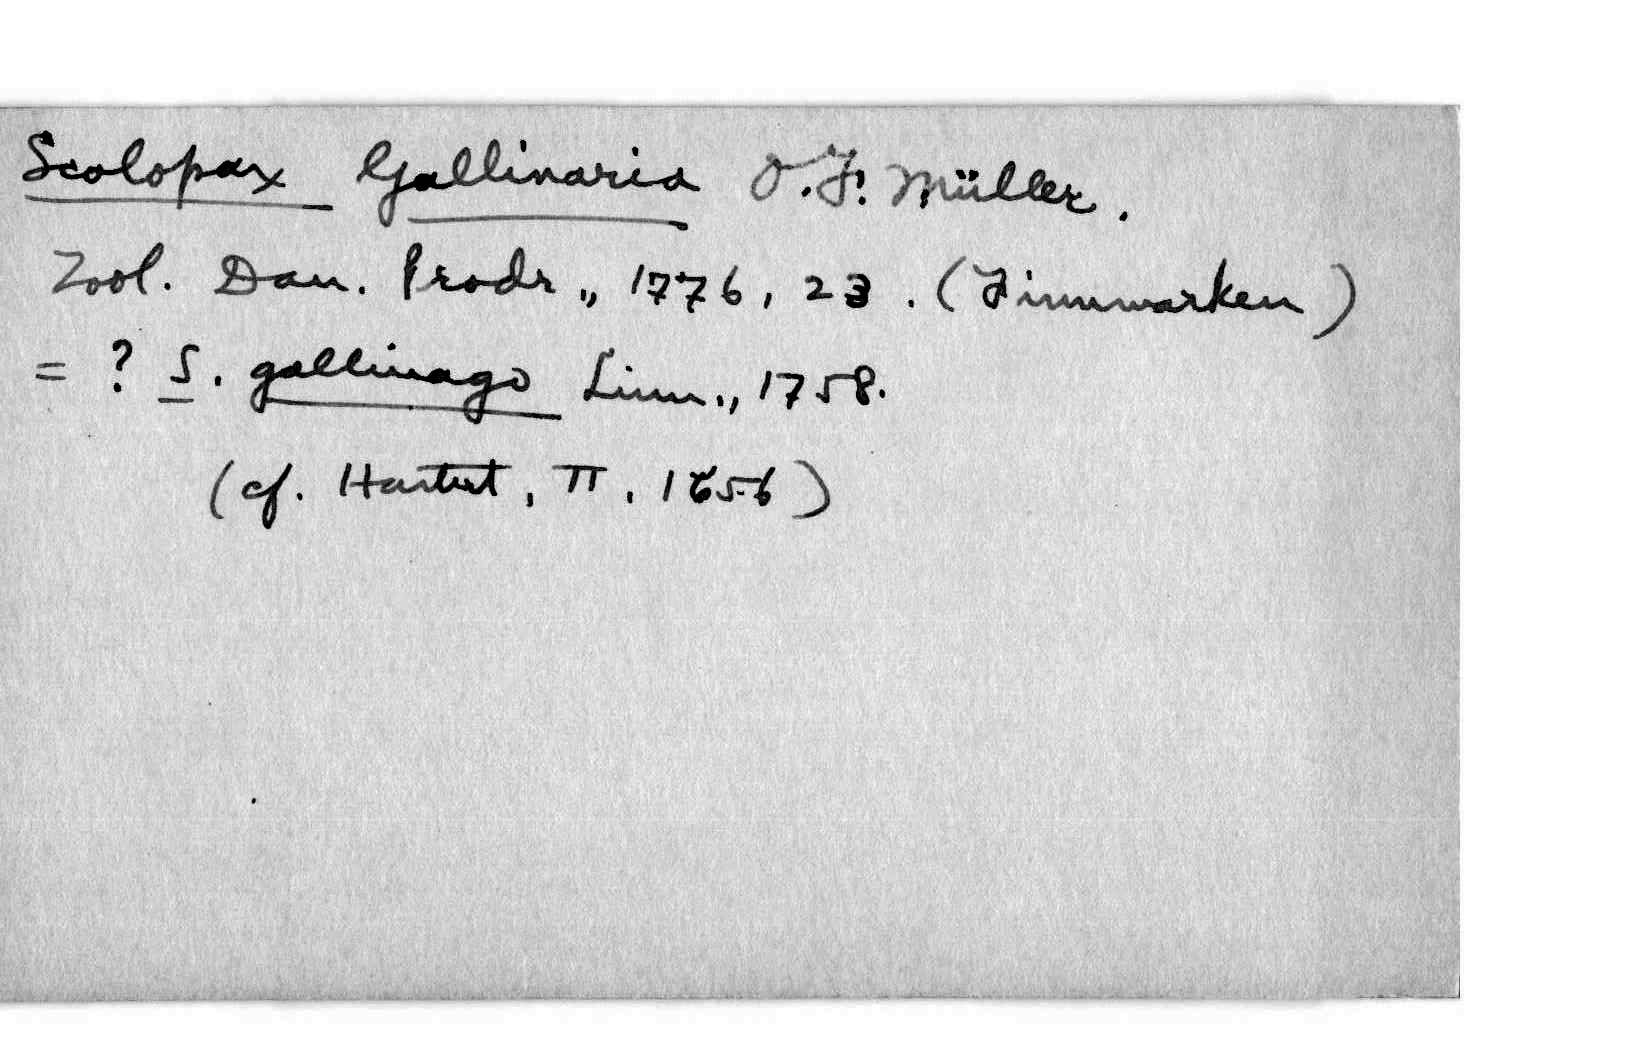 Scolopax Gallinaria O.F. Müller.
Zool. Dan. Prodr., 1776, 23. (Finnmarken)
= ? S. gallinago Linn., 1758.
(cf. Hartert, II, 1656)